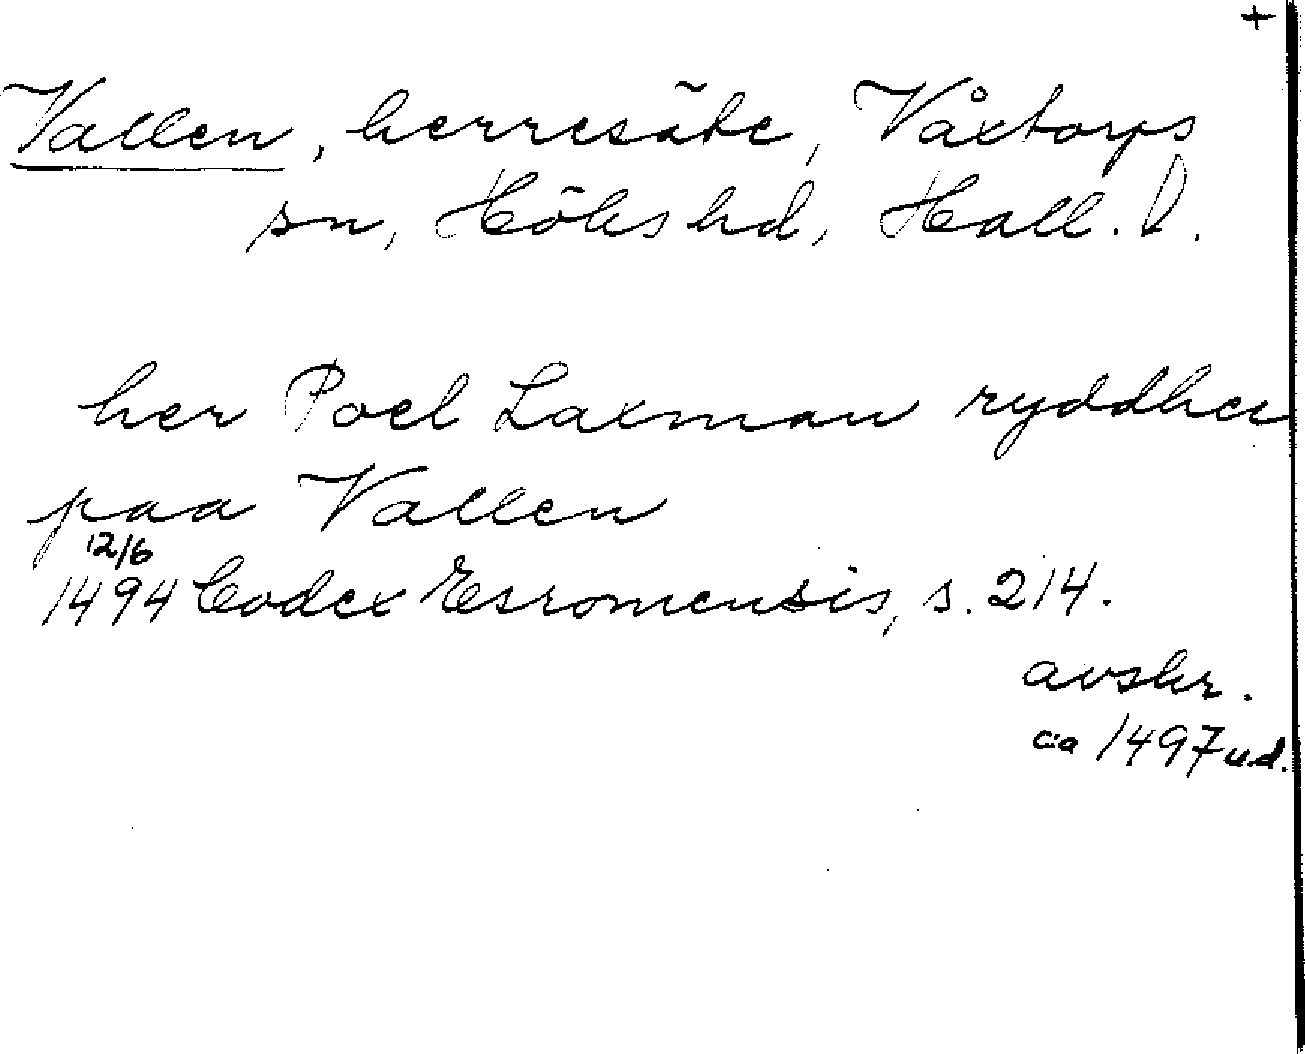 +
Vallen, herresäte, Våxtorps
sn, Höks hd, Hall. D.
her Poel Laxman ryddher
paa Vallen
12/6
1494 Codex Esromensis, s. 214.
avskr.
ca 1497 u.d.